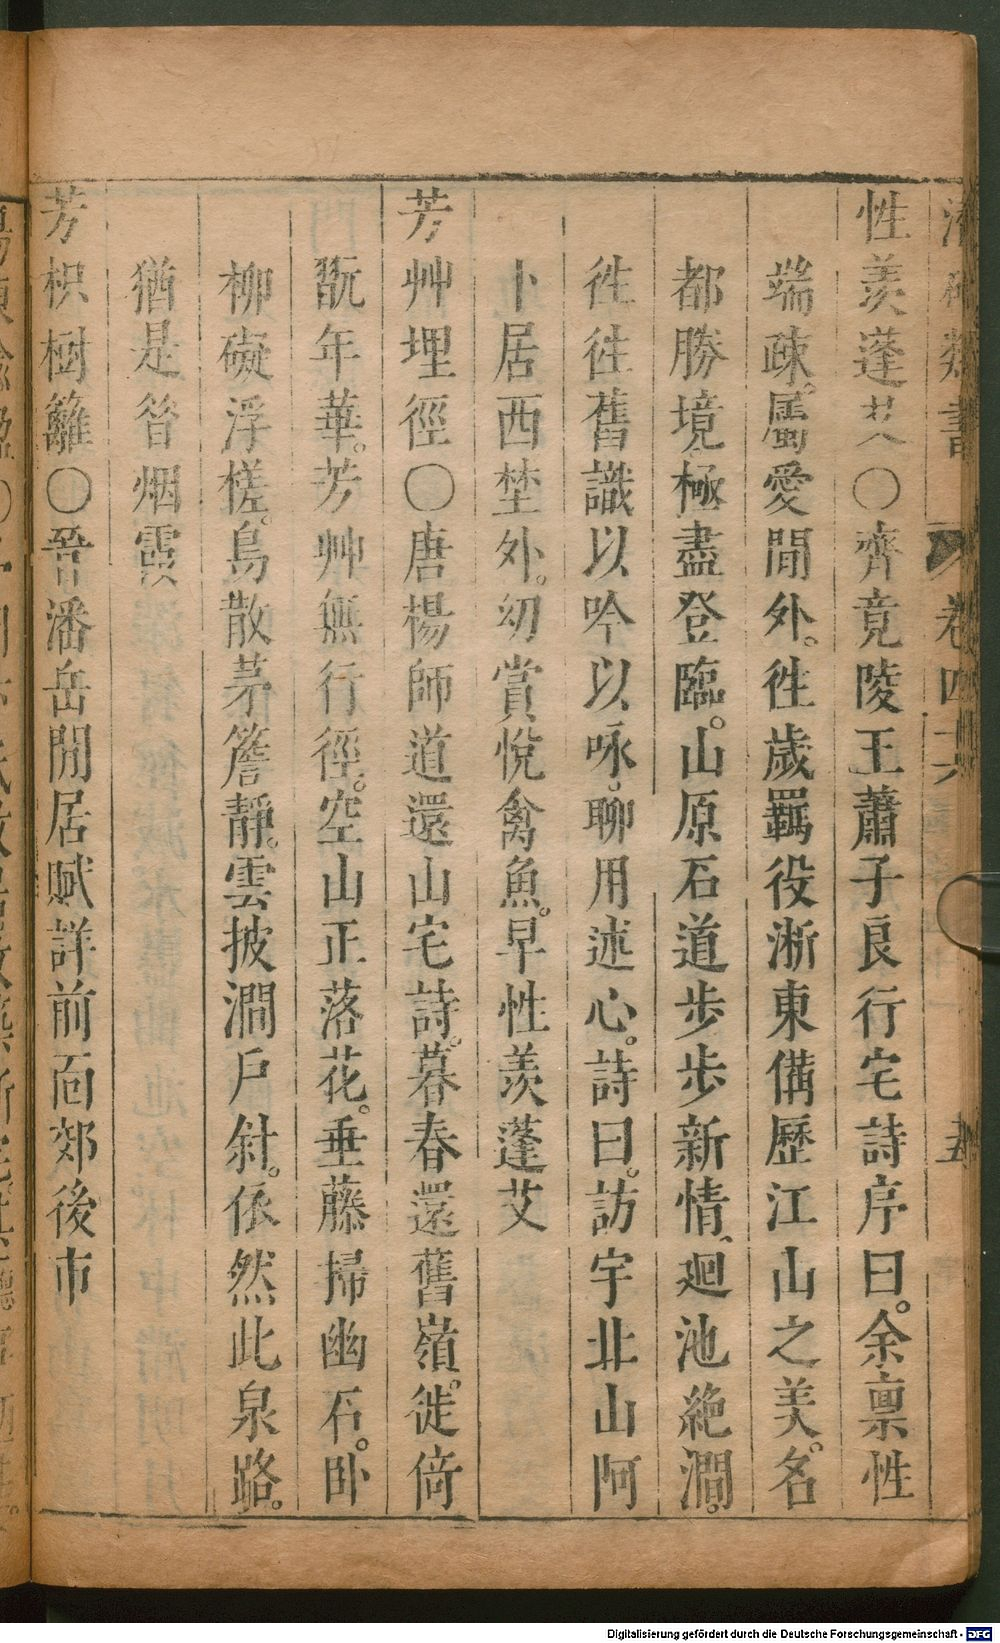 類書 卷四十六 五
性羨蓬艾〇齊竟陵王蕭子良行宅詩序曰。余禀性
端疎。屬愛閒外。徃歲羈役浙東備歷江山之美。名
都勝境極盡登臨。山原石道步步新情。廻池絶澗。
徃徃舊識以吟以咏。聊用述心。詩曰。訪宇北山阿
卜居西埜外。幼賞悅禽魚。早性羨蓬艾
芳艸埋徑〇唐楊師道還山宅詩。暮春還舊嶺。徙倚
翫年華。芳艸無行徑。空山正落花。垂藤掃幽石。卧
柳礙浮槎。鳥散茅簷靜。雲披澗戶斜。依然此泉路。
猶是昔烟霞
芳枳樹籬〇晉潘岳閒居賦詳前面郊後市
Digitalisierung gefördert durch die Deutsche Forschungsgemeinschaft - DFG